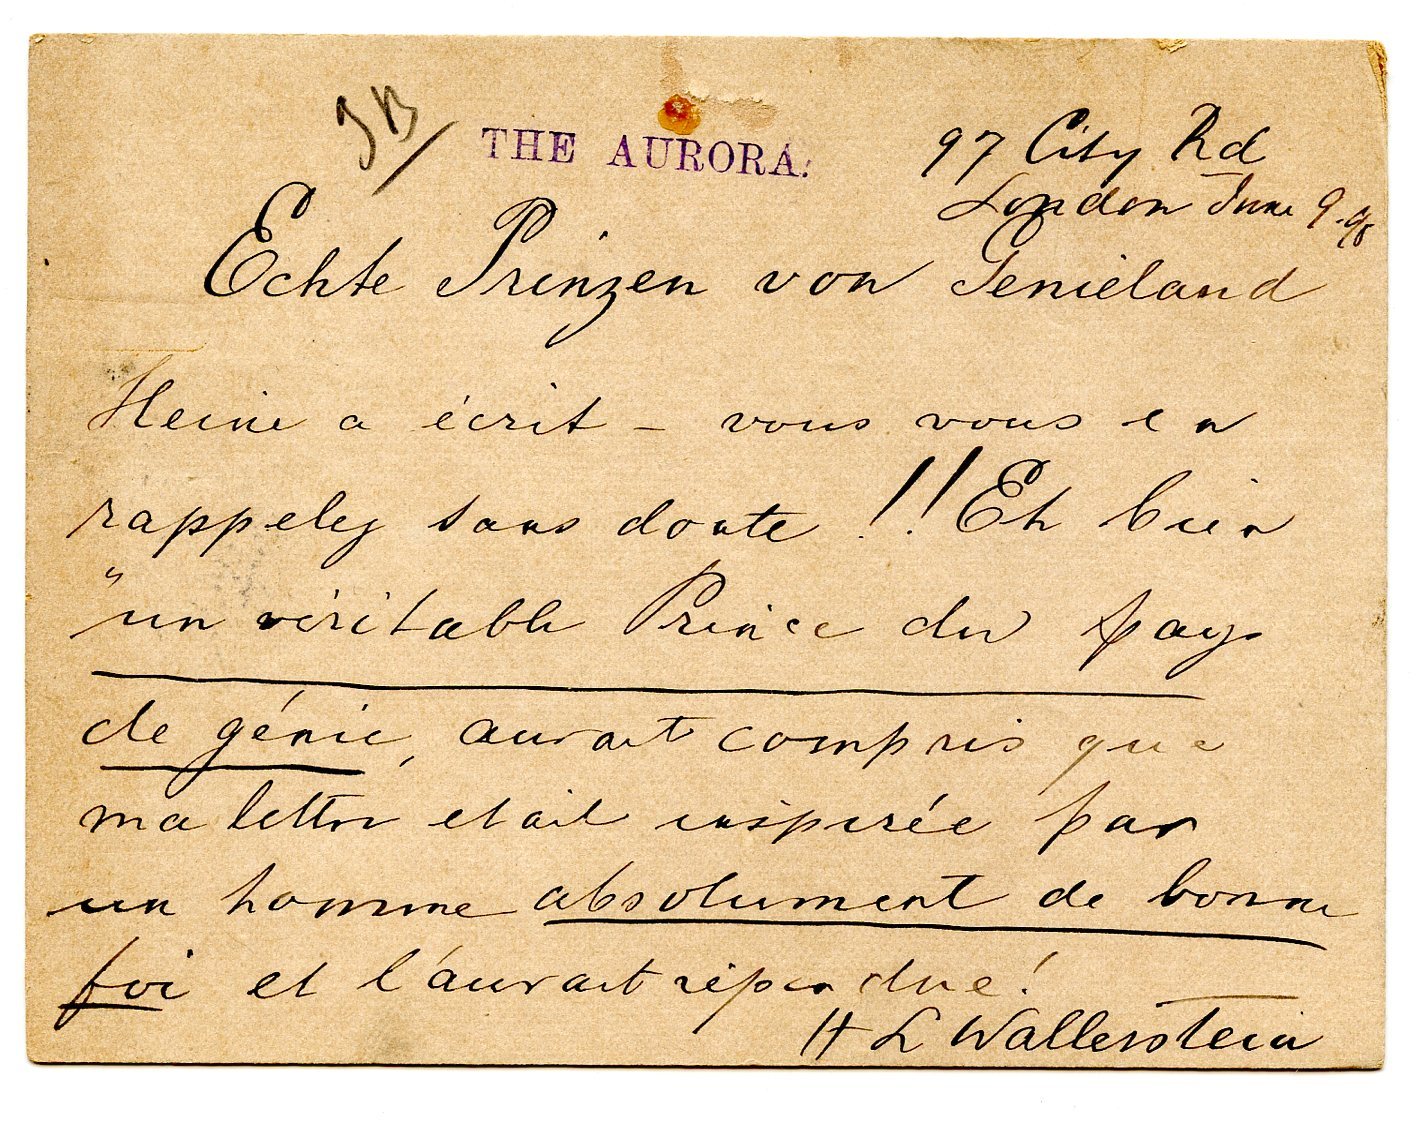 JB
THE AURORA.
97 City Rd
London June 9.98
Echte Prinzen von Genieland
Heine a écrit – vous vous en
rappeley sans doute !! Eh bien
"un véritable Prince du pays
de génie, aurait compris que
ma lettre etait inspirée par
un homme absolument de bonne
foi et l'aurait répondue!
H L Wallerstein